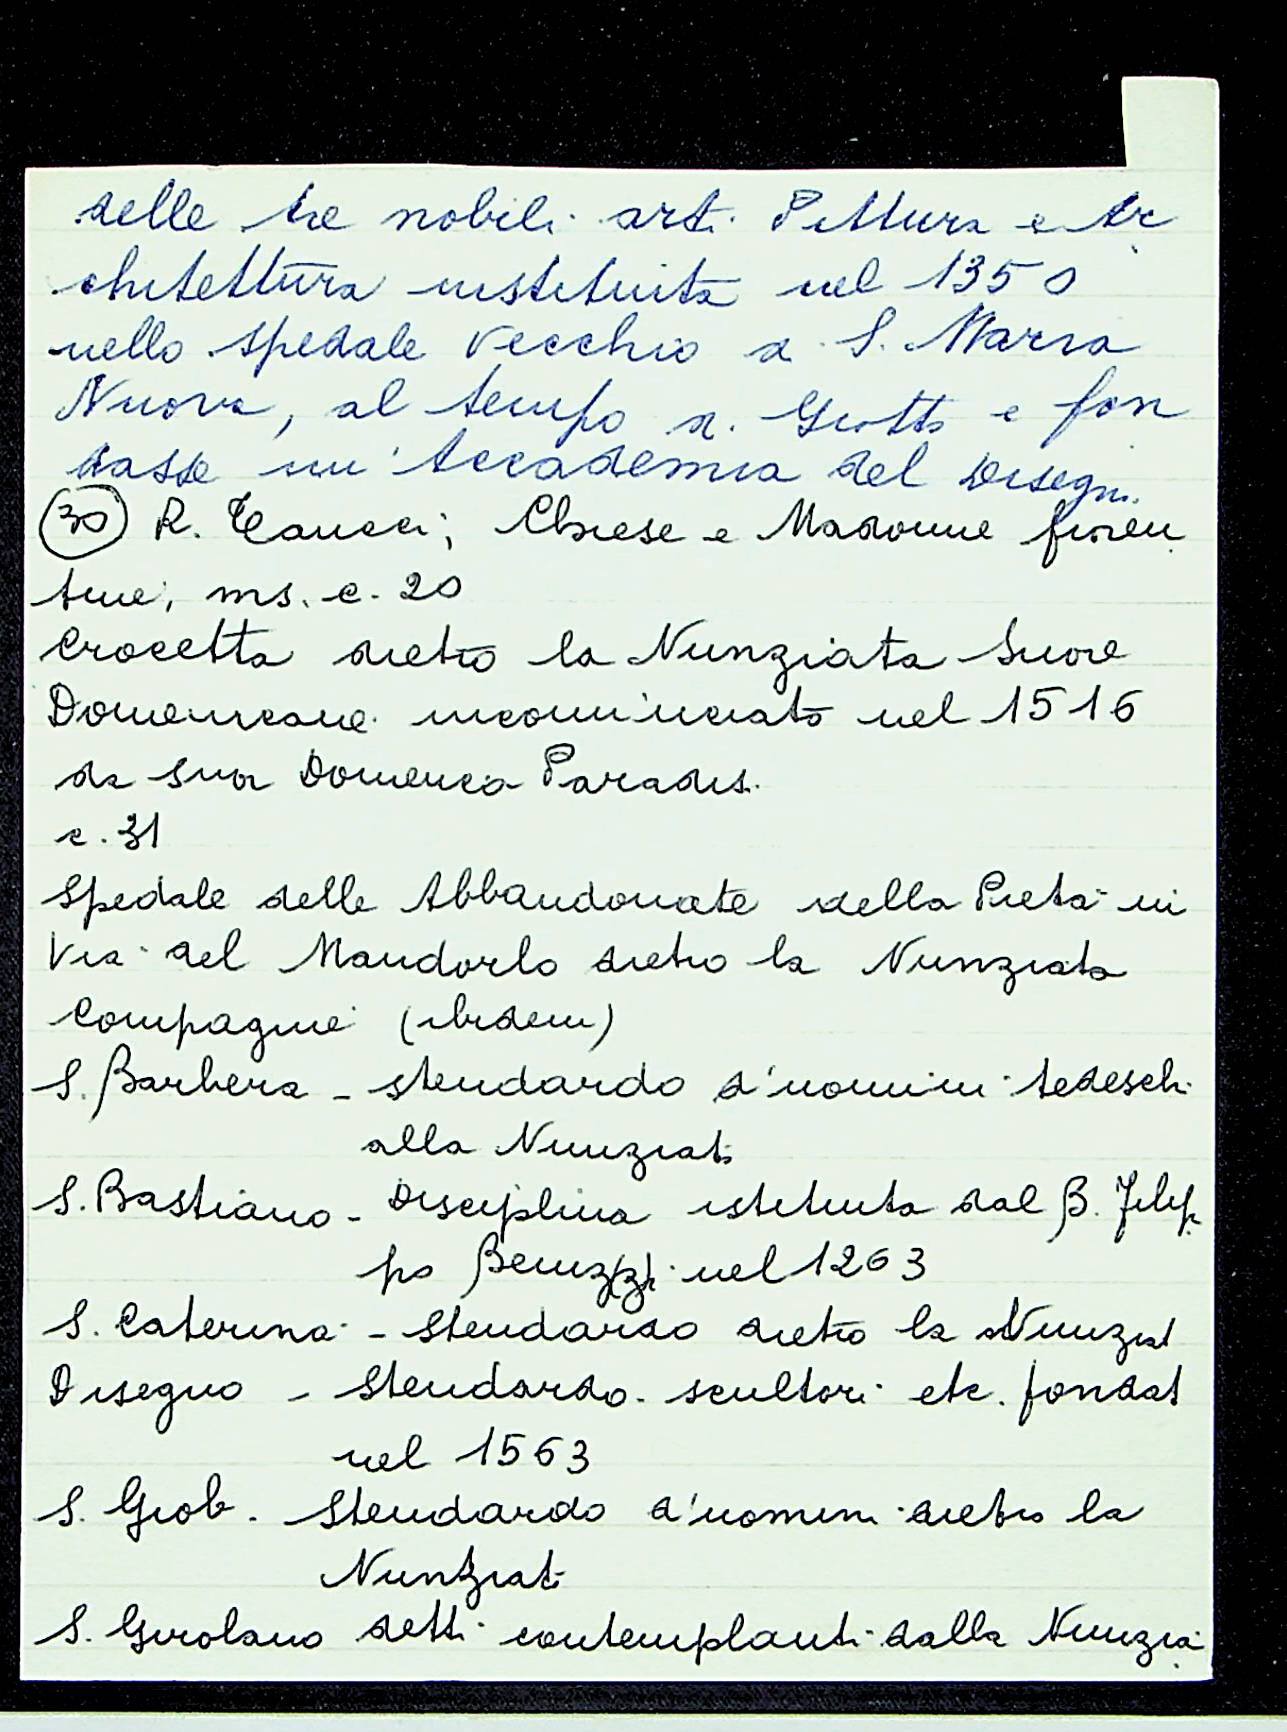 delle tre nobili arti Pittura e Ar
chitettura instituita nel 1350
nello spedale vecchio di S. Maria
Nuova, al tempo di Giotto e fon
dasse un'Accademia del Disegni.
(30) R. Taucci; Chiese e Madonne fioren
tine, ms. c. 20
Crocetta dietro la Nunziata Suore
Domenicane incominciato nel 1516
da Suor Domenica Paradisi.
c. 31
Spedale delle Abbandonate della Pietà in
Via del Mandorlo dietro la Nunziata
Compagnie (ibidem)
S. Barbera - stendardo d'uomini tedeschi
alla Nunziata
S. Bastiano - Disciplina istituita dal B. Filip
po Benizzi nel 1263
S. Caterina - Stendardo dietro la Nunziat
Disegno - Stendardo scultori etc. fondat
nel 1563
S. Giob. - Stendardo d'uomini dietro la
Nunziata
S. Girolamo detti contemplanti dalla Nunzia